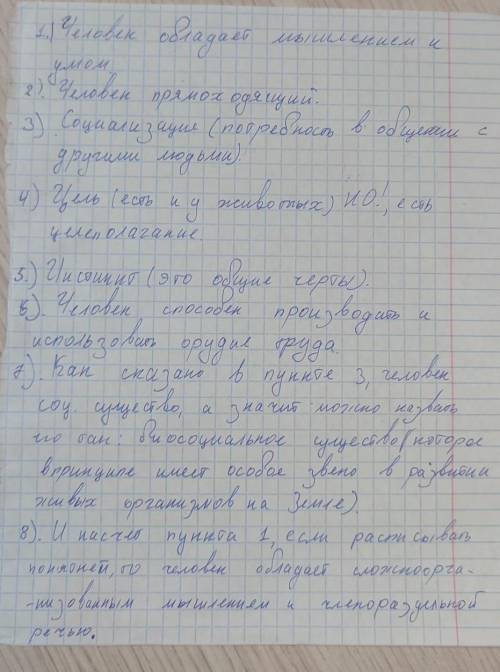 1.) Человек обладает мышлением и
умом
2). Человек прямоходящий.
3) Социализация (потребность в общении с
другими людьми).
4) Цель (есть и у животных) НО!, есть
целеполагание.
5.) Инстинкт (это общие черты).
6). Человек способен производить и
использовать орудие труда.
7). Как сказано в пункте 3, человек
соц. существо, а значит можно назвать
его так: биосоциальное существо (которое
впринципе имеет особое звено в развитии
живых организмов на Земле).
8). И насчет пункта 1, если расписывать
понятней, то человек обладает сложноорга-
-низованным мышлением и членораздельной
речью.